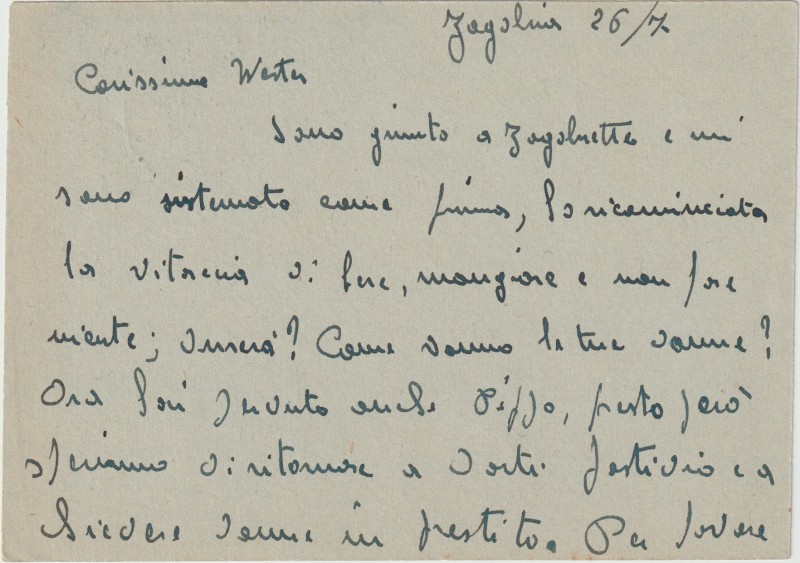 Zagabria 26/7
Carissimo Wester
Sono giunto a Zagabria e mi
sono sistemato come prima, ho ricominciata
la vitaccia di bere, mangiare e non fare
niente; durerà? Come vanno le tue donne?
Ora hai perduto anche Pippo, presto però
speriamo di ritornare a darti fastidio e a
chiedere donne in prestito. Per favore